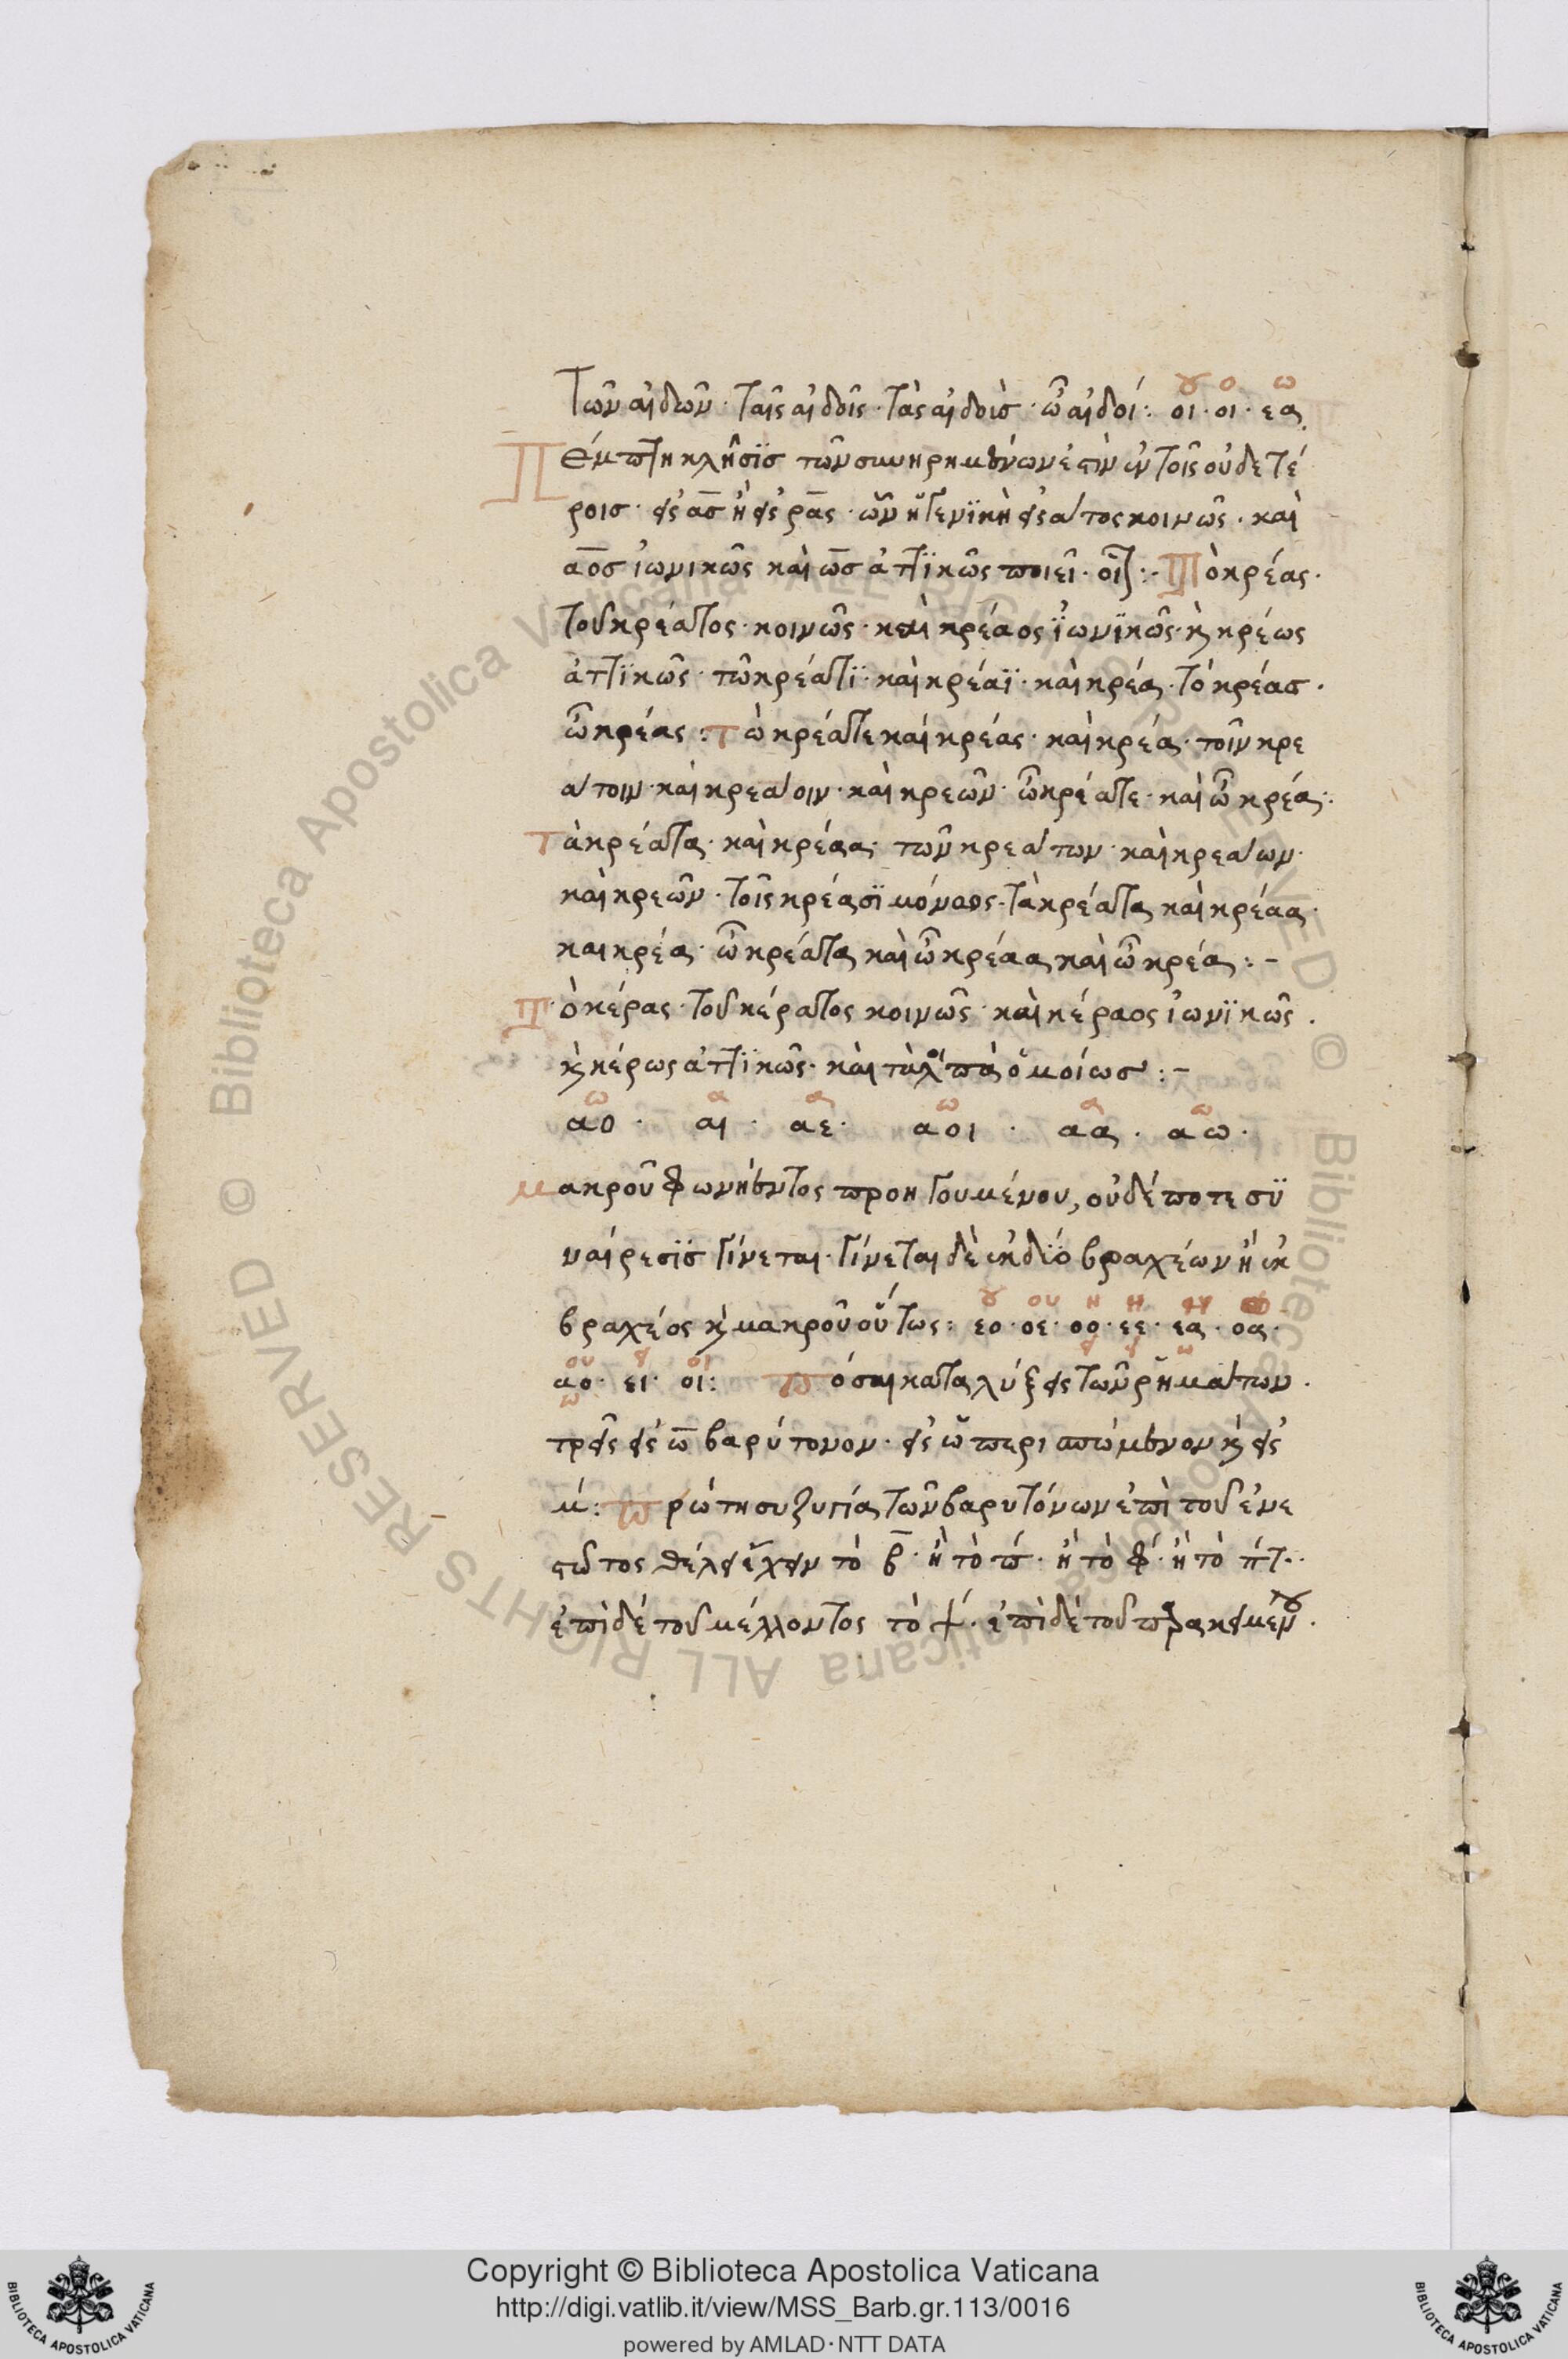 Τῶν αἰδῶν· ταῖς αἰδοῖς· τὰς αἰδοὶς· ὦ αἰδοί: οι· οι· εα
Πέμπτη κλῆσϊς τῶν συνηρημένων ἐστὶν ἐν τοῖς οὐδετέ
ροις· εἰς ας ἢ εἰς ρας· ὧν ἡ γενϊκὴ εἰς ατος κοινῶς· καὶ
αος ἰωνικῶς καὶ ως ἀττϊκῶς ποιεῖ· οἷον:- Τὸ κρέας·
τοῦ κρέατος· κοινῶς· καὶ κρέαος ἰωνϊκῶς· κ κρέως
ἀττϊκῶς· τῶ κρέατϊ· καὶ κρέαϊ· καὶ κρέα· τὸ κρέας·
ὦ κρέας: τὼ κρέατε καὶ κρέας· καὶ κρέα· τοῖν κρε
άτοιν· καὶ κρεάοιν· καὶ κρεῶν· ὦ κρέατε· καὶ ὦ κρέα:·
τὰ κρέατα· καὶ κρέαα· τῶν κρεάτων· καὶ κρεάων·
καὶ κρεῶν· τοῖς κρέασϊ μόνως· τὰ κρέατα καὶ κρέαα·
και κρέα· ὦ κρέατα καὶ ὦ κρέαα καὶ ὦ κρέα:-
Τὸ κέρας· τοῦ κέρατος κοινῶς· καὶ κέραος ἰωνϊκῶς·
κ κέρως ἀττϊκῶς· καὶ τὰ λοιπὰ ὁμοίως:-
αο· αι· αε· αοι· αα· αω·
μακροῦ φωνήεντος προηγουμένου, οὐδέποτε συ
ναίρεσϊς γίνεται· γίνεται δὲ ἐκ δύο βραχέων ἢ ἐκ
βραχέος κ μακροῦ οὕτως: εο· οε· οο· εε· εα· οα·
αο· ει· οι: πόσαι καταλύξεις τῶν ῥημάτων·
τρεῖς εἰς ω βαρύτονον· εἰς ω περισπώμενον κ εἰς
μι: πρώτη συζυγία τῶν βαρυτόνων ἐπὶ τοῦ ἐνε
στῶτος θέλει ἔχειν τὸ β· ἢ τὸ π· ἢ τὸ φ· ἢ τὸ πτ·
ἐπὶ δὲ τοῦ μέλλοντος τὸ ψ· ἐπὶ δὲ τοῦ παρακειμένου·
Copyright © Biblioteca Apostolica Vaticana
http://digi.vatlib.it/view/MSS_Barb.gr.113/0016
powered by AMLAD·NTT DATA
BIBLIOTECA APOSTOLICA VATICANA
BIBLIOTECA APOSTOLICA VATICANA
© Biblioteca Apostolica Vaticana ALL RIGHTS RESERVED © Biblioteca Apostolica Vaticana ALL RIGHTS RESERVED